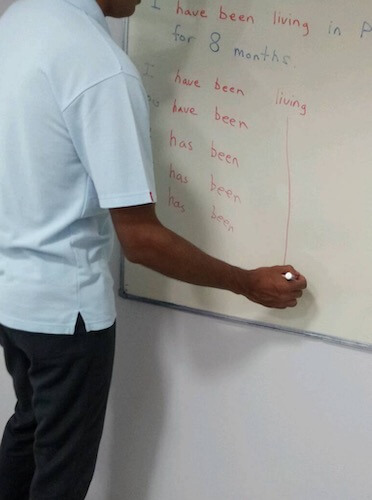 I have been living in
for 8 months.
I have been living
have been
has been
has been
has been